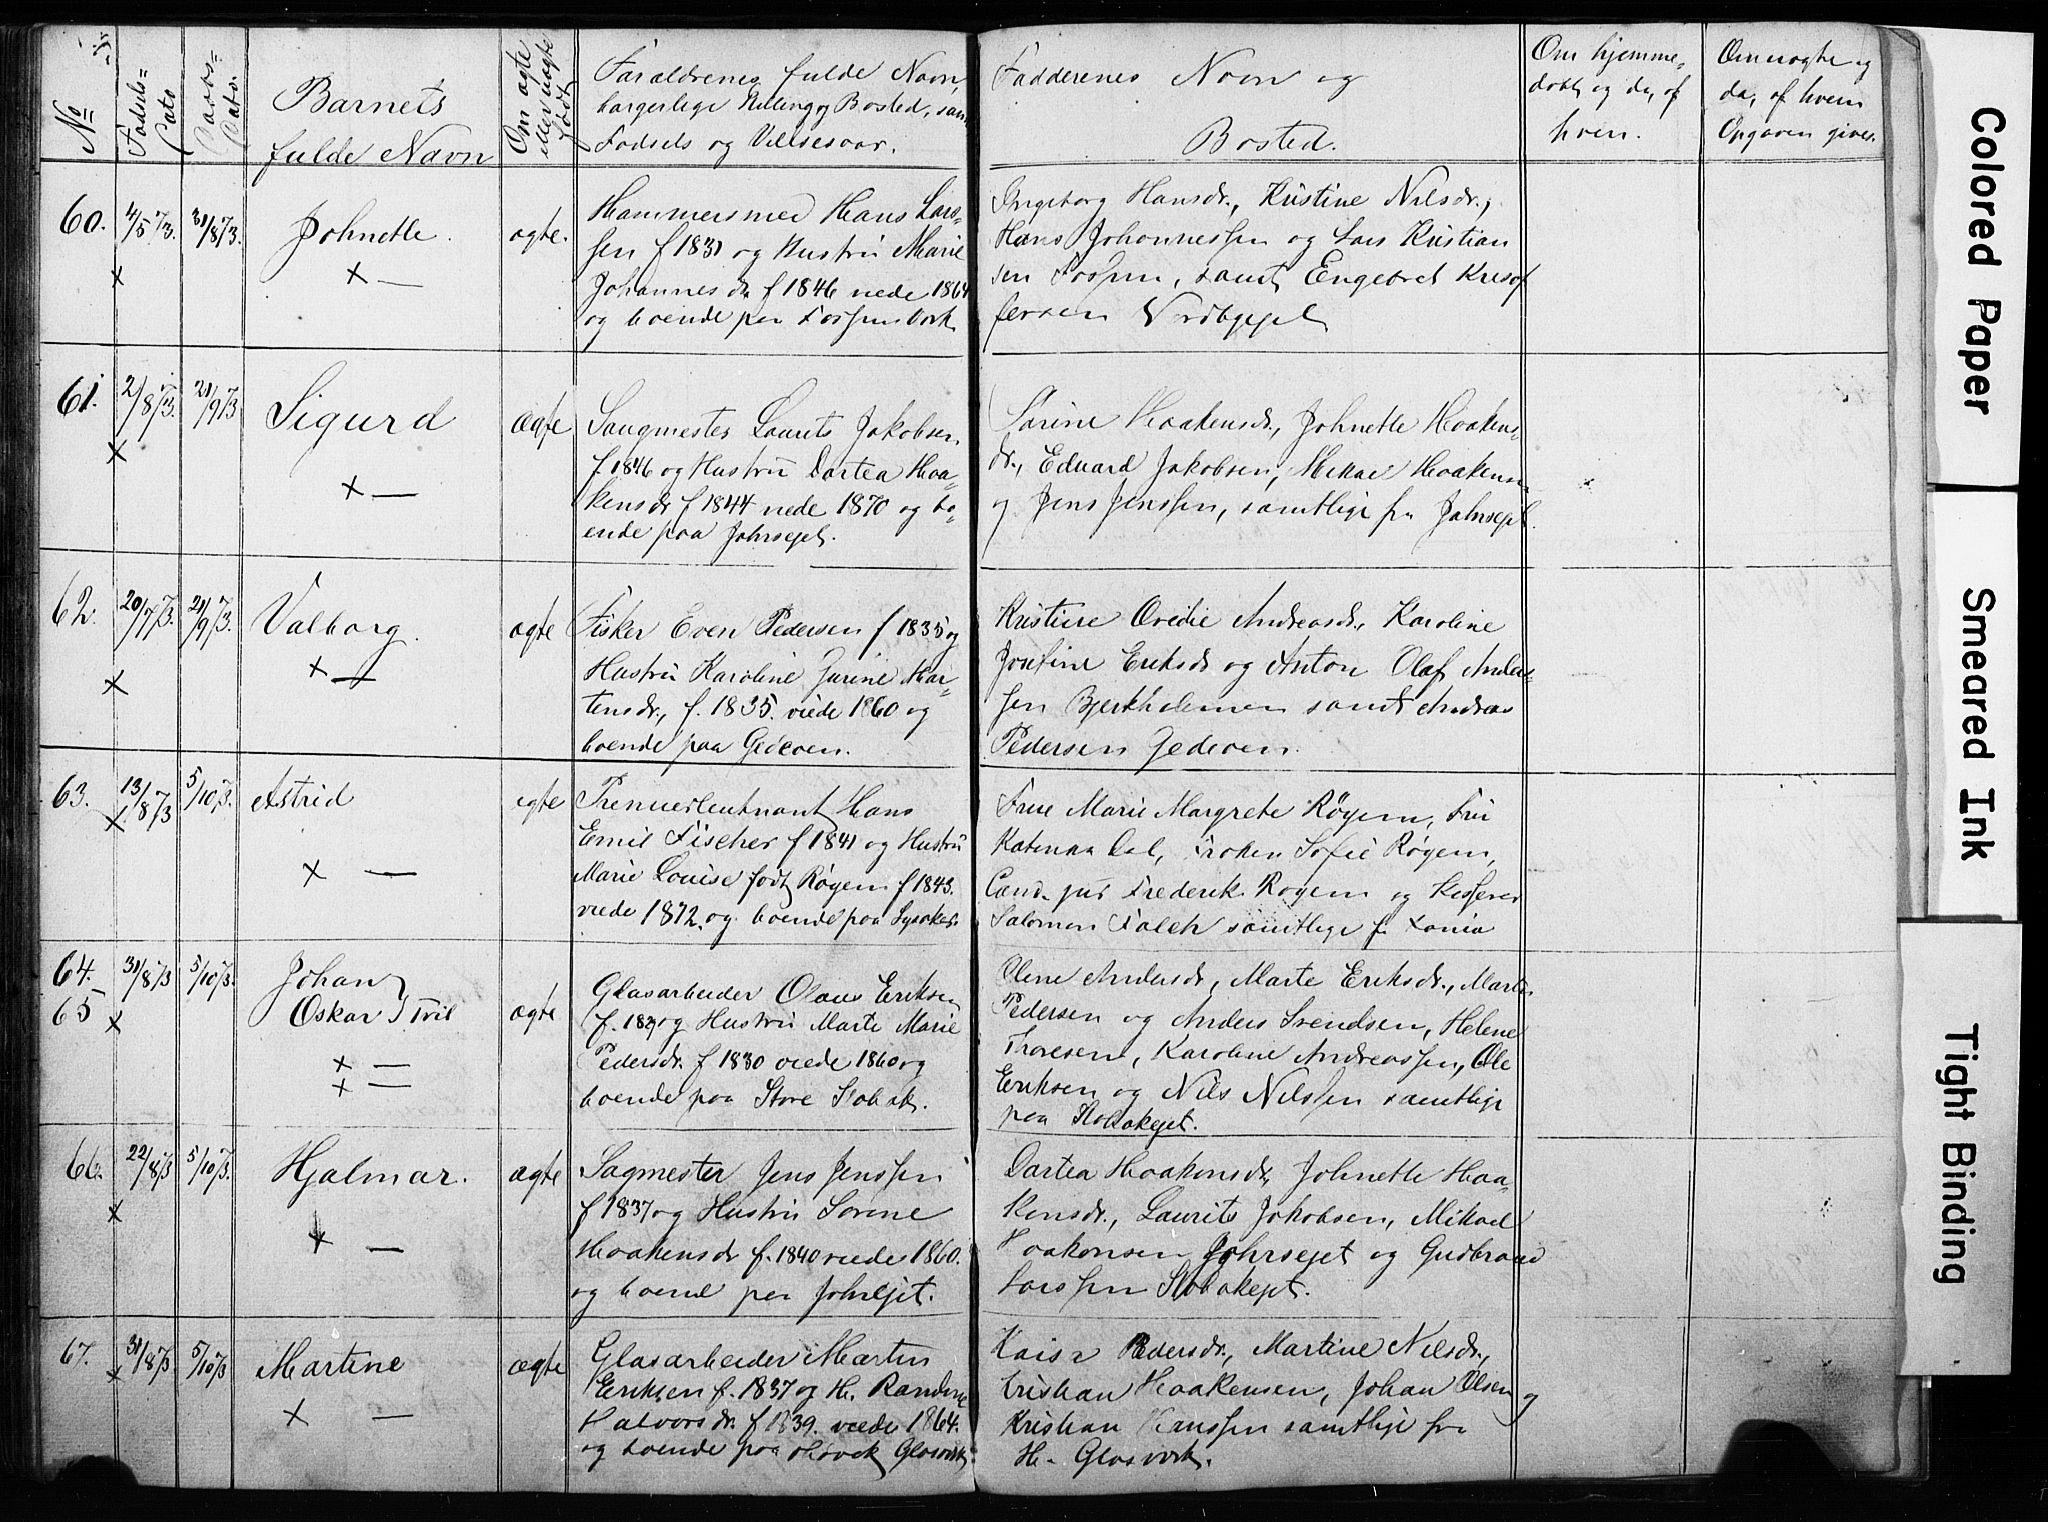 No
Fødsels=
Dato
Daabs=
Dato.
Barnets
fulde Navn
Om ægte
eller uægte
født
Forældrenes fulde Navn,
borgerlige Stilling og Bosted, samt
Fødsels og Vielsesaar.
Faddernes Navn og
Bosted.
Om hjemme-
døbt og da, af
hvem.
Om uægte og
da, af hvem
Opgaven gives.
60. 4/5 73. 31/8 73. Johnette. ægte.
Hammersmed Hans Lars-
sen f 1831 og Hustru Marie
Johannesdr. f 1846 viede 1864
og boende paa Fossumverk
Ingeborg Hansdr., Kristine Nilsdr.,
Hans Johannessen og Lars Kristian
sen Fossum, samt Engebret Kristof
fersen
x
x —
61. 2/8 73. 21/9 73 Sigurd ægte
Saugmester Laurits Jakobsen
f 1846 og Hustru Dortea Haa-
kensdr f 1844 viede 1870 og bo-
ende paa Johrsejet.
Sørine Haakensdr., Johnette Haakens-
dr., Eduard Jakobsen, Mikael Haakens.
og Jens Jenssen, samtlige fra Johrsejet.
x
x —
62. 20/7 73. 21/9 73. Valborg. ægte
Fisker Even Pedersen f 1835 og
Hustru Karoline Jurine Mar-
tensdr., f. 1835. viede 1860 og
boende paa Gedeoen.
Kristine Ovidie Andreasdr., Karoline
Josefine Eriksdr og Anton Olaf Anders-
sen Bjerkholmen samt Andreas
Pedersen Gedeoen.
x
x —
63. 13/8 73 5/10 73. Astrid ægte
Premierleutnant Hans
Emil Fischer f 1841 og Hustru
Marie Louise født Røyem f 1843.
viede 1872. og boende paa Lysaker.
Frue Marie Margrete Røyem, Fru
Katrina Dal, Frøken Sofie Røyem,
Cand. jur Frederik Røyem og Kasserer
Salomon Falch samtlige f. Xania
x
x —
64. 31/8 73 5/10 73. Johan
65 Oskar } Tvil. ægte
Glasarbeider Olaus Eriksen
f. 1829 og Hustru Marte Marie
Pedersdr. f 1830 viede 1860 og
boende paa Store Stabæk.
Olene Andersdr., Marte Eriksdr., Martin
Pedersen og Anders Svendsen, Helene
Thoresen, Karoline Andreassen, Ole
Eriksen og Nils Nilssen samtlige
paa Stabækejet.
x
x —
x —
66. 22/8 73 5/10 73. Hjalmar. ægte
Sagmester Jens Jenssen
f 1837 og Hustru Sørene
Haakensdr f. 1840 viede 1860.
og boende paa Johrsejet.
Dortea Haakensdr, Johnette Haa-
kensdr., Laurits Jakobsen, Mikael
Haakonsen Johrsejet og Gudbrand
Larssen Stabækejet.
x
x —
67. 31/8 73. 5/10 73 Martine ægte
Glasarbeider Martin
Eriksen f. 1837 og H. Randine
Halvorsdr. f 1839. viede 1864.
og boende paa Høvik Glasværk.
Kaisa Pedersdr., Martine Nilsdr.,
Kristian Haakensen, Johan Olsen og
Kristian Hanssen samtlige fra
H. Glasværk.
x
x —
Colored Paper
Smeared Ink
Tight Binding